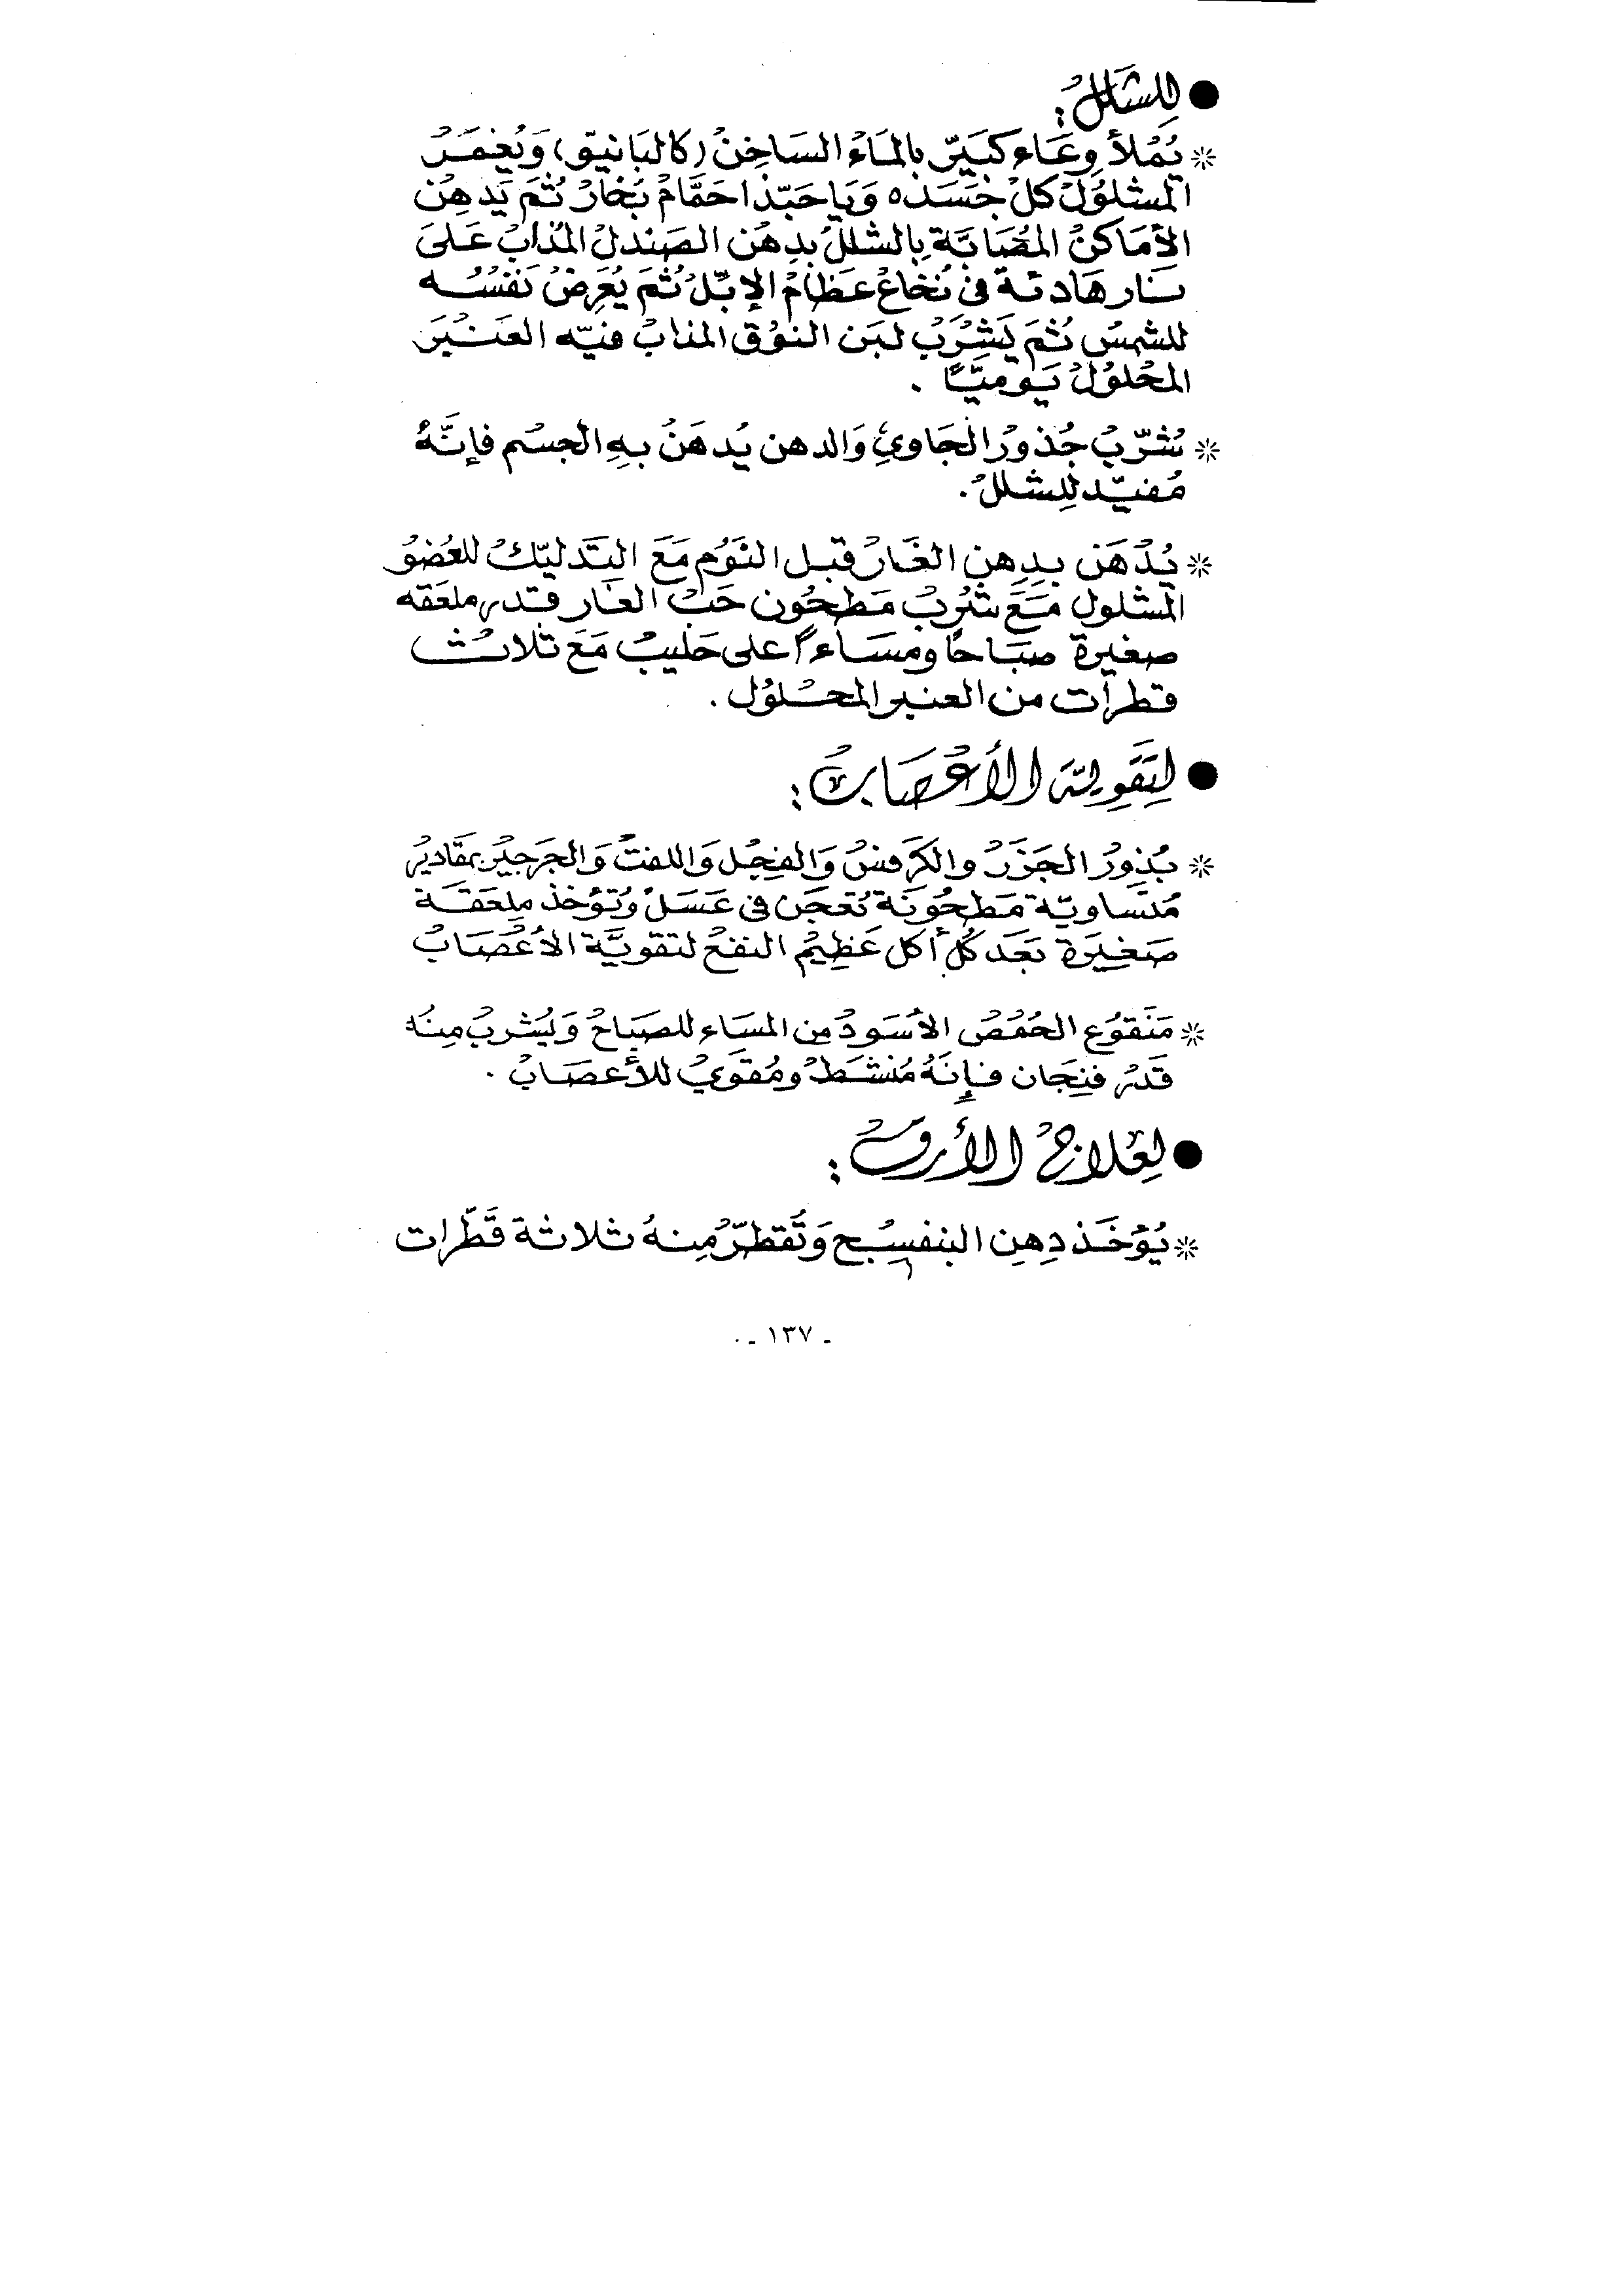 ● لِلشَّلَلُ :
* يُمْلأ وِعَاء كَبَيّر بالمَاءُ السَاخِنْ (كالبَانيّو) وَيُغمَرُ
المشلوُلْ كلْ جَسَده وَيَاحَبّذا حَمَّامْ بُخارْ ثُمَ يَدهِنْ
الأمَاكنْ المُصَابَة بِالشللْ بدِهْن الصَندلْ المُذابْ عَلىَ
نَار هَادئة في نُخَاعْ عَظامْ الإبّلْ ثُمَ يُعَرِضْ نَفسُه
للشمسْ ثُمَ يَشِرَبْ لبَن النوُق المذابْ فيّه العَنْبَر
المحْلوُلْ يَوميَّاً .
* شُرّبْ جُذورْ الجَاويِ وَالدهن يُدهَنْ بهِ الجسْم فإنَّهُ
مُفيّد لِلشللْ .
* يُدْهَن بدِهِن الغَارْ قبل النَوُم مَعَ التَدليّكْ للعُضوْ
المشلول مَعَ شُربْ مَطحُون حَبْ الغَار قدر ملعَقه
صغيرة صبَاحاً ومسَاءاً على حَليبْ مَعَ ثلاثْ
قطرات من العنبر المحْلوُل .
● لِتَقَوِيَة الأعْصَابْ :
* بُذورْ الجَزَرْ والكرَفسْ وَالفجْل وَاللفتْ وَالجَرجيْر بمقَاديرْ
مُتسَاويّة مَطحُونَة تُعجَن في عَسَلْ وَتؤخذ مِلعَقَة
صَغيَرة بَعَد كُل أكل عَظِيمْ النفعْ لتقويَّة الأعْصَابْ
* مَنَقوُع الحُمُصْ الأسَودْ مِن المسَاء للصَبَاحْ وَيُشربْ مِنهُ
قَدرْ فنِجَان فإنَهُ مُنشَطْ ومُقوَيْ للأعصَابْ .
● لِعْلاجْ الأرقْ :
* يُؤخَذ دِهِن البنفسِجْ وَتُقطرّ مِنهُ ثلاثة قَطّرات
- ١٣٧ -